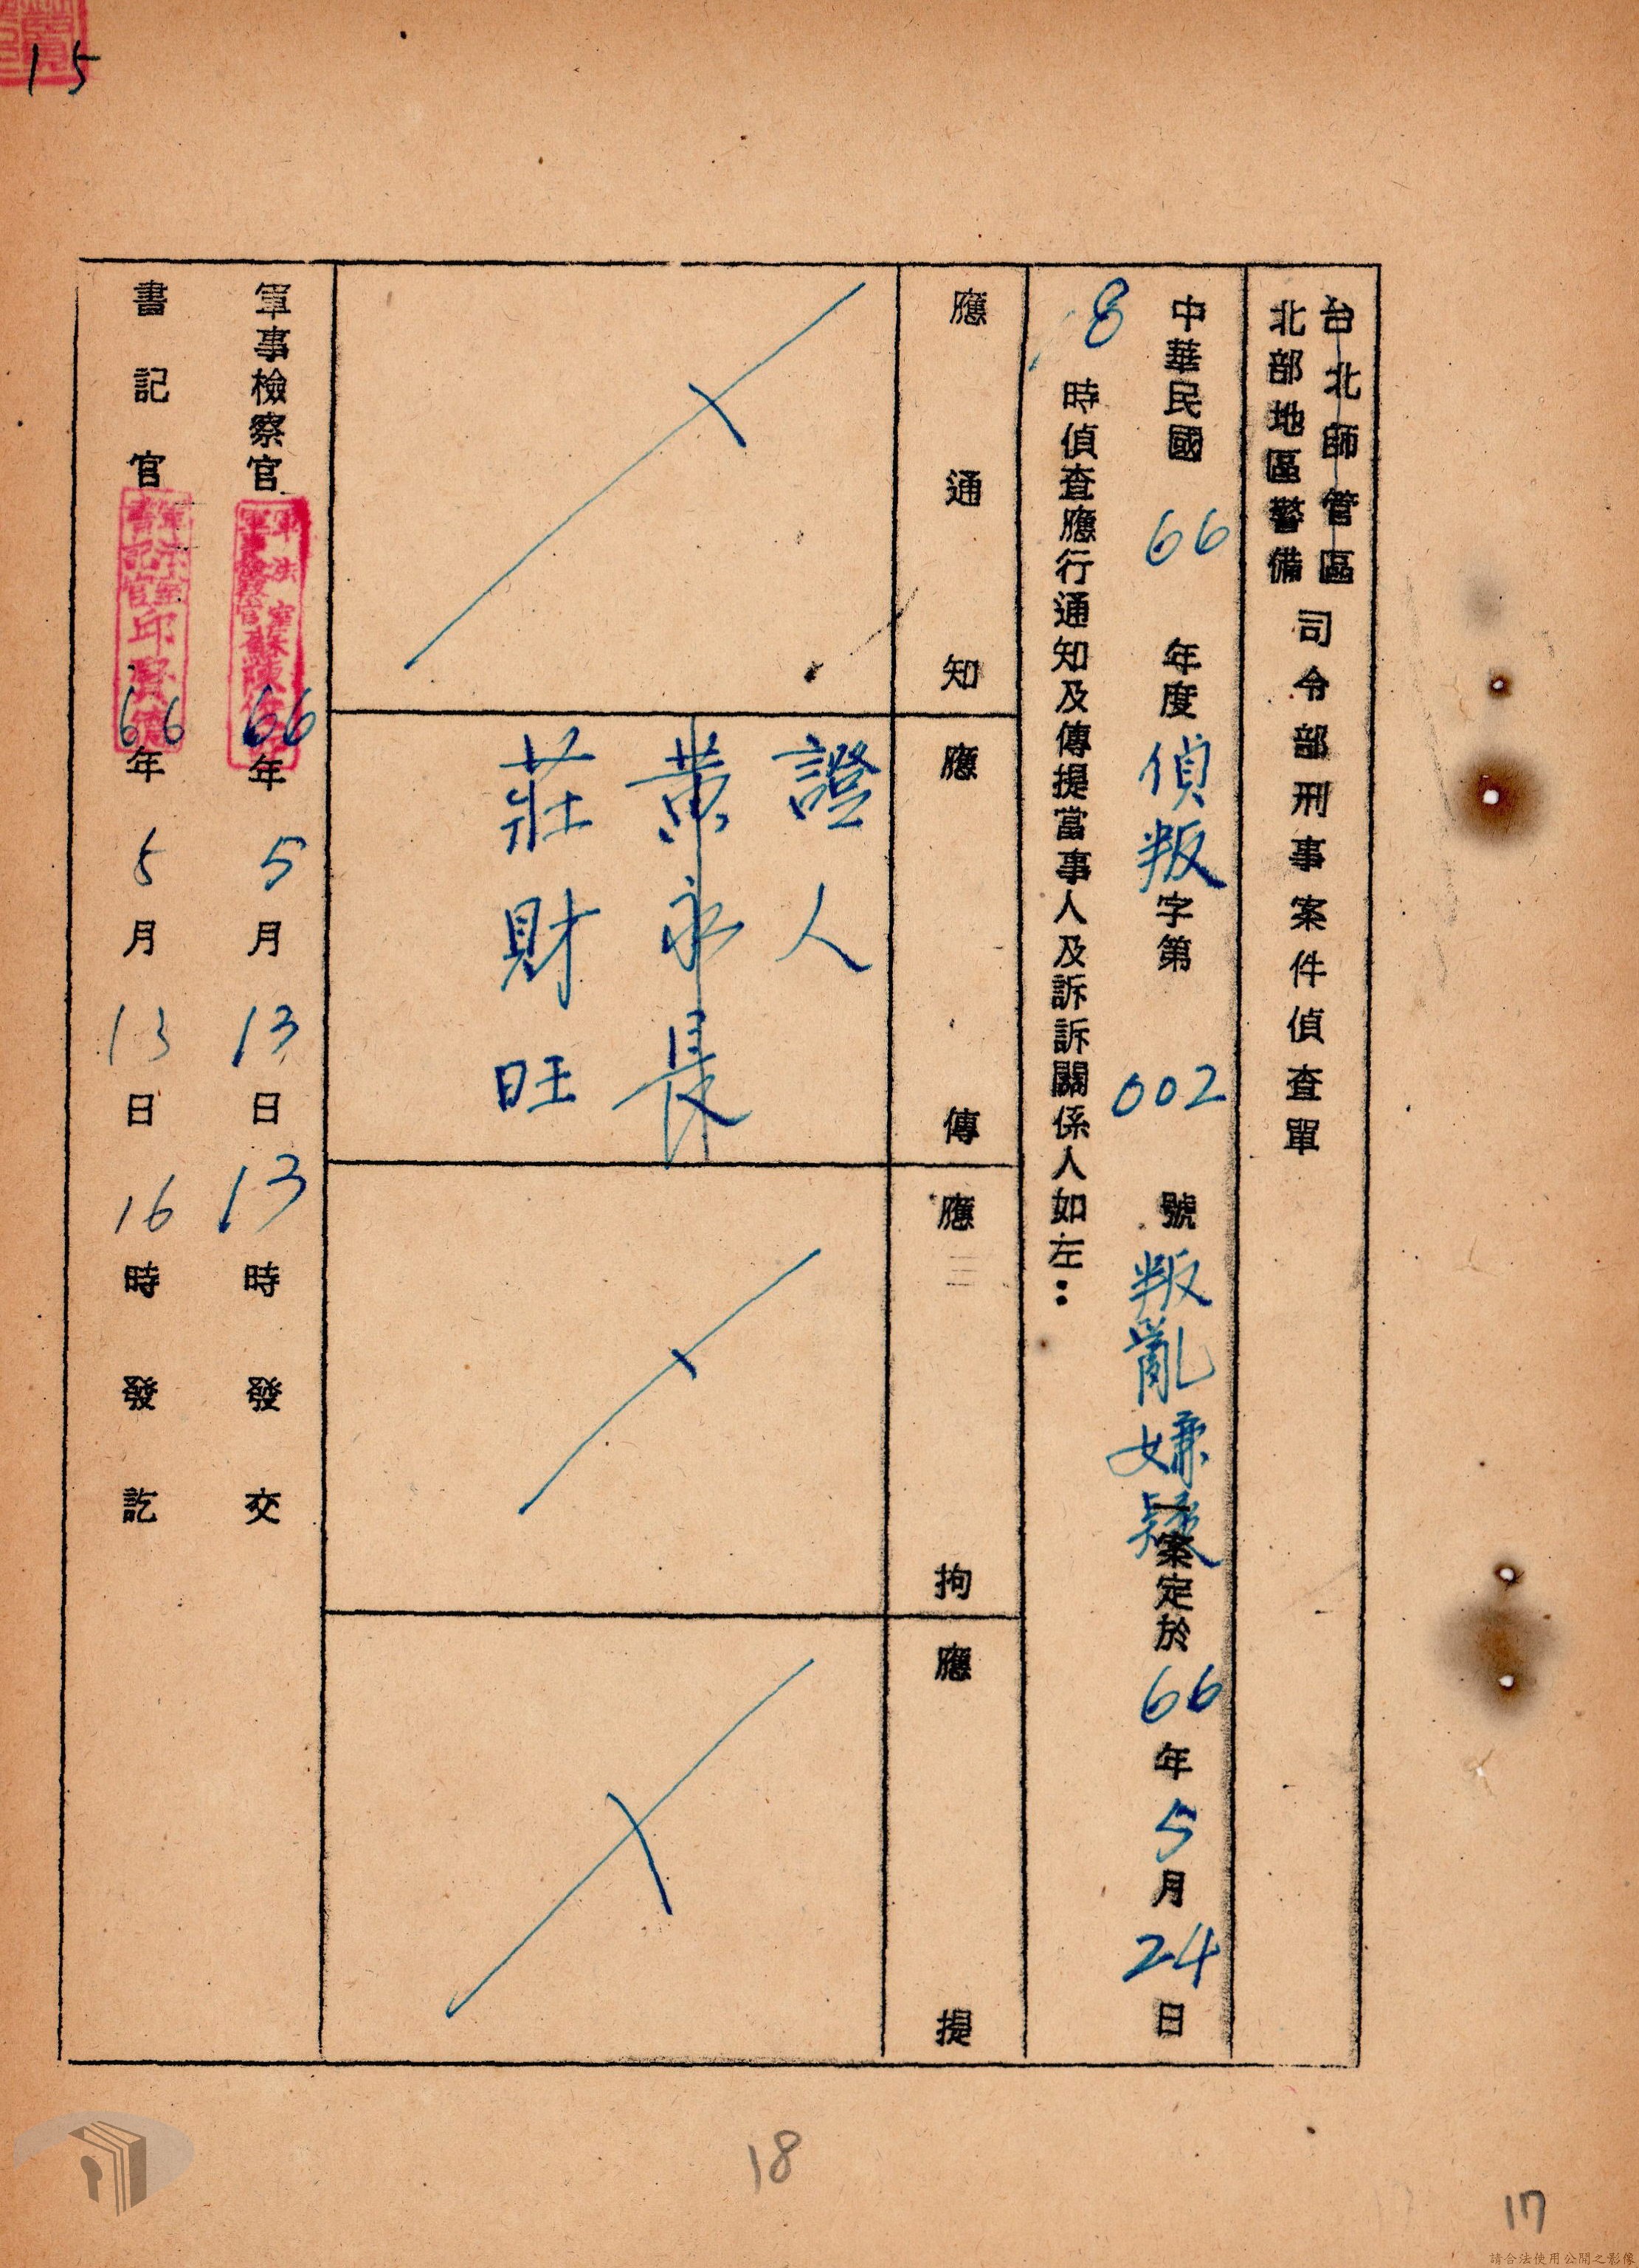 台北師管區
北部地區警備
司令部刑事案件偵查單
中華民國66年度偵叛字第002號叛亂嫌疑一案定於66年5月24日
8時偵查應行通知及傳提當事人及訴訴關係人如左：
應通知
應傳
應拘
應提
證人
黃永長
莊財旺
軍事檢察官
66年5月13日13時發交
書記官
66年5月13日16時發訖
15
18
17
請合法使用公開之影像